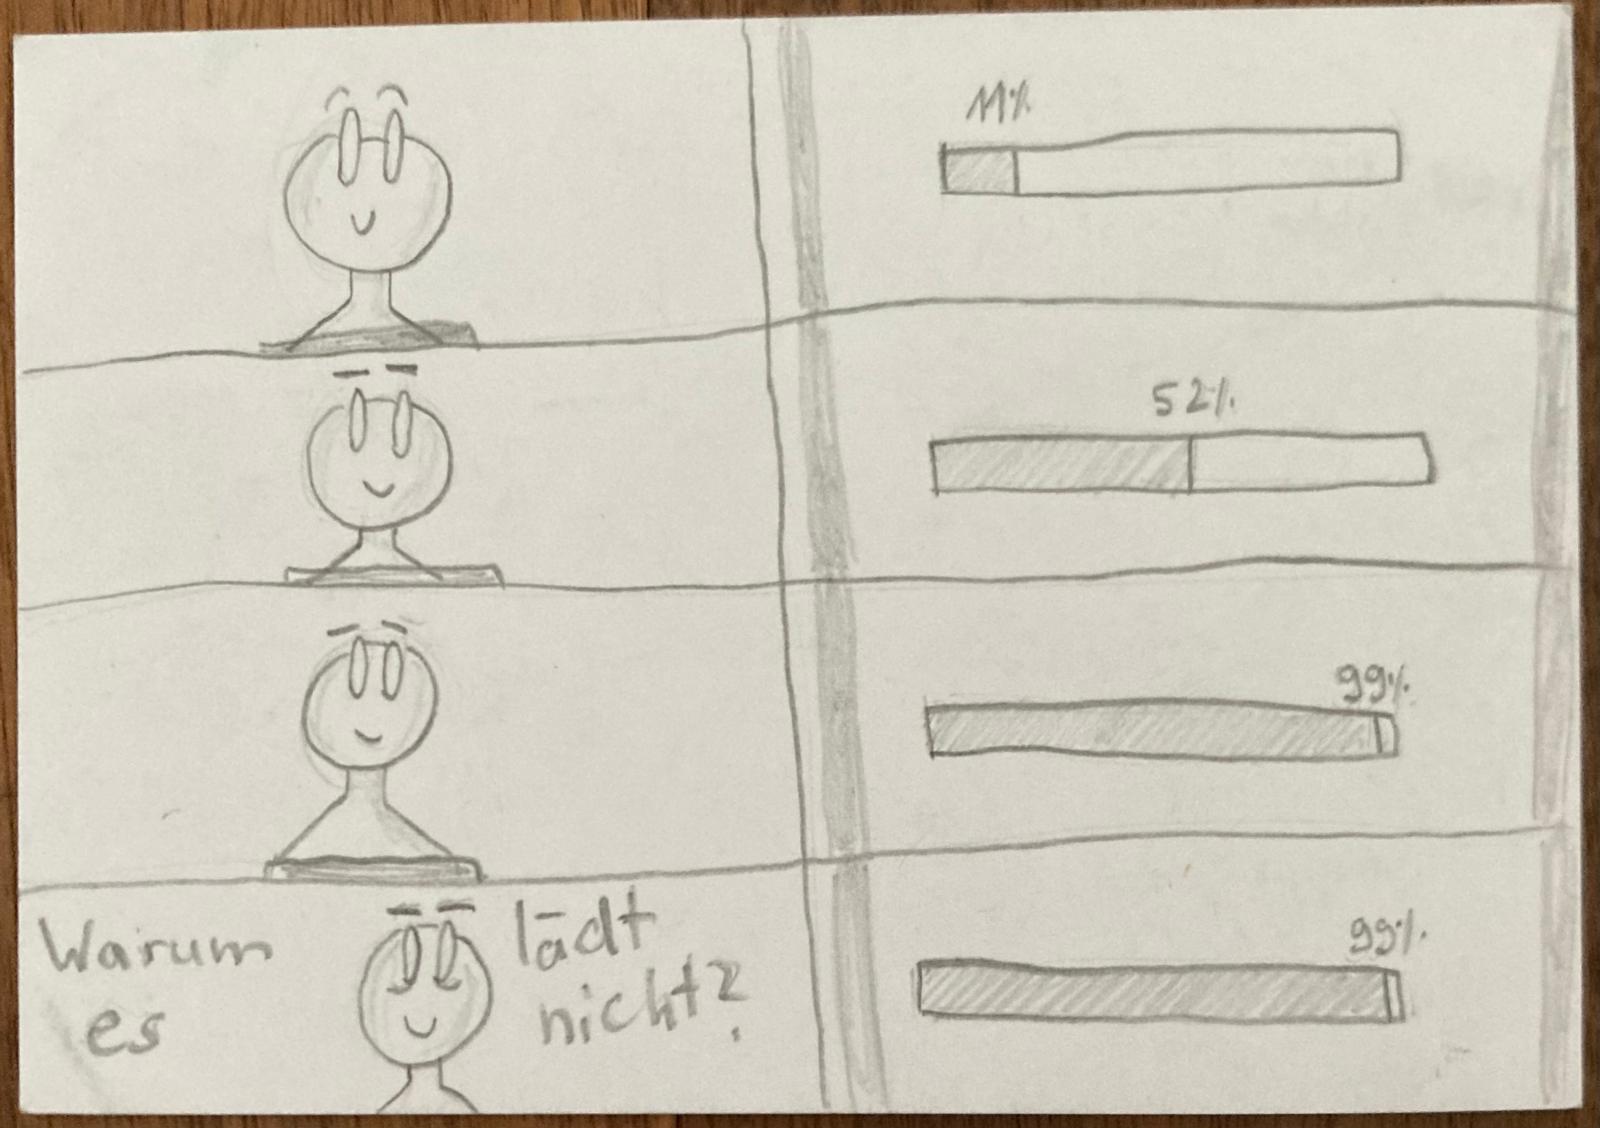 11%
52%
99%
Warum
es
lädt
nicht?
99%